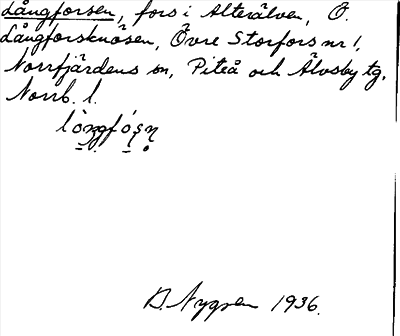 Långforsen, fors i Alterälven, Ö.
Långforsknösen, Övre Storfors nr 1,
Norrfjärdens sn, Piteå och Älvsby tg,
Norrb. l.
B. Nygren 1936.